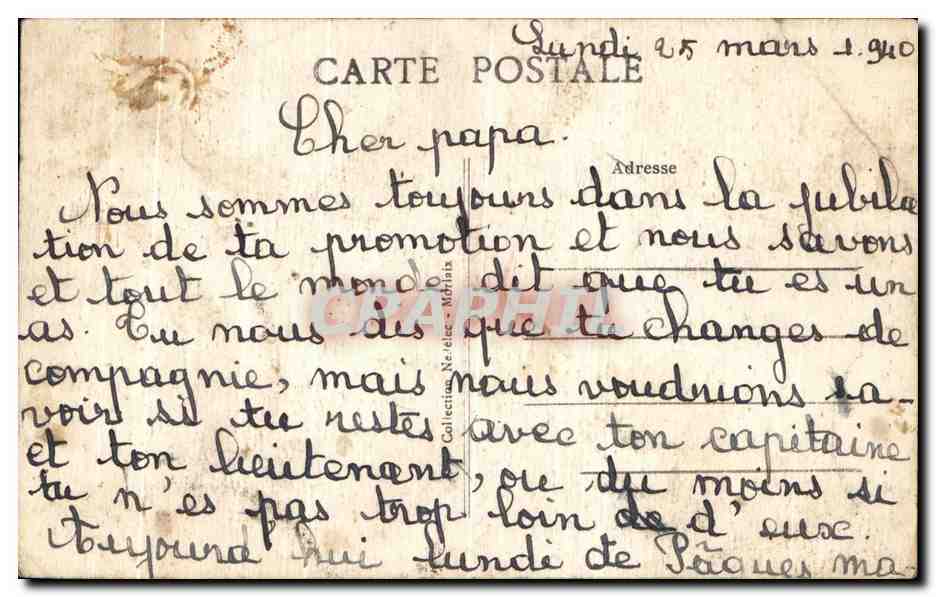 Lundi 25 mars 1.940
CARTE POSTALE
Cher papa.
Adresse
Nous sommes toujours dans la jubila
tion de ta promotion et nous savons
et tout le monde dit que tu es un
as. Tu nous dis que tu changes de
compagnie, mais nous voudrions sa-
voir si tu restes avec ton capitaine
et ton lieutenant, ou du moins si
tu n'es pas trop loin de d'eux.
Aujourd'hui lundi de Pâques ma-
Collection - Morlaix
CPARHTI